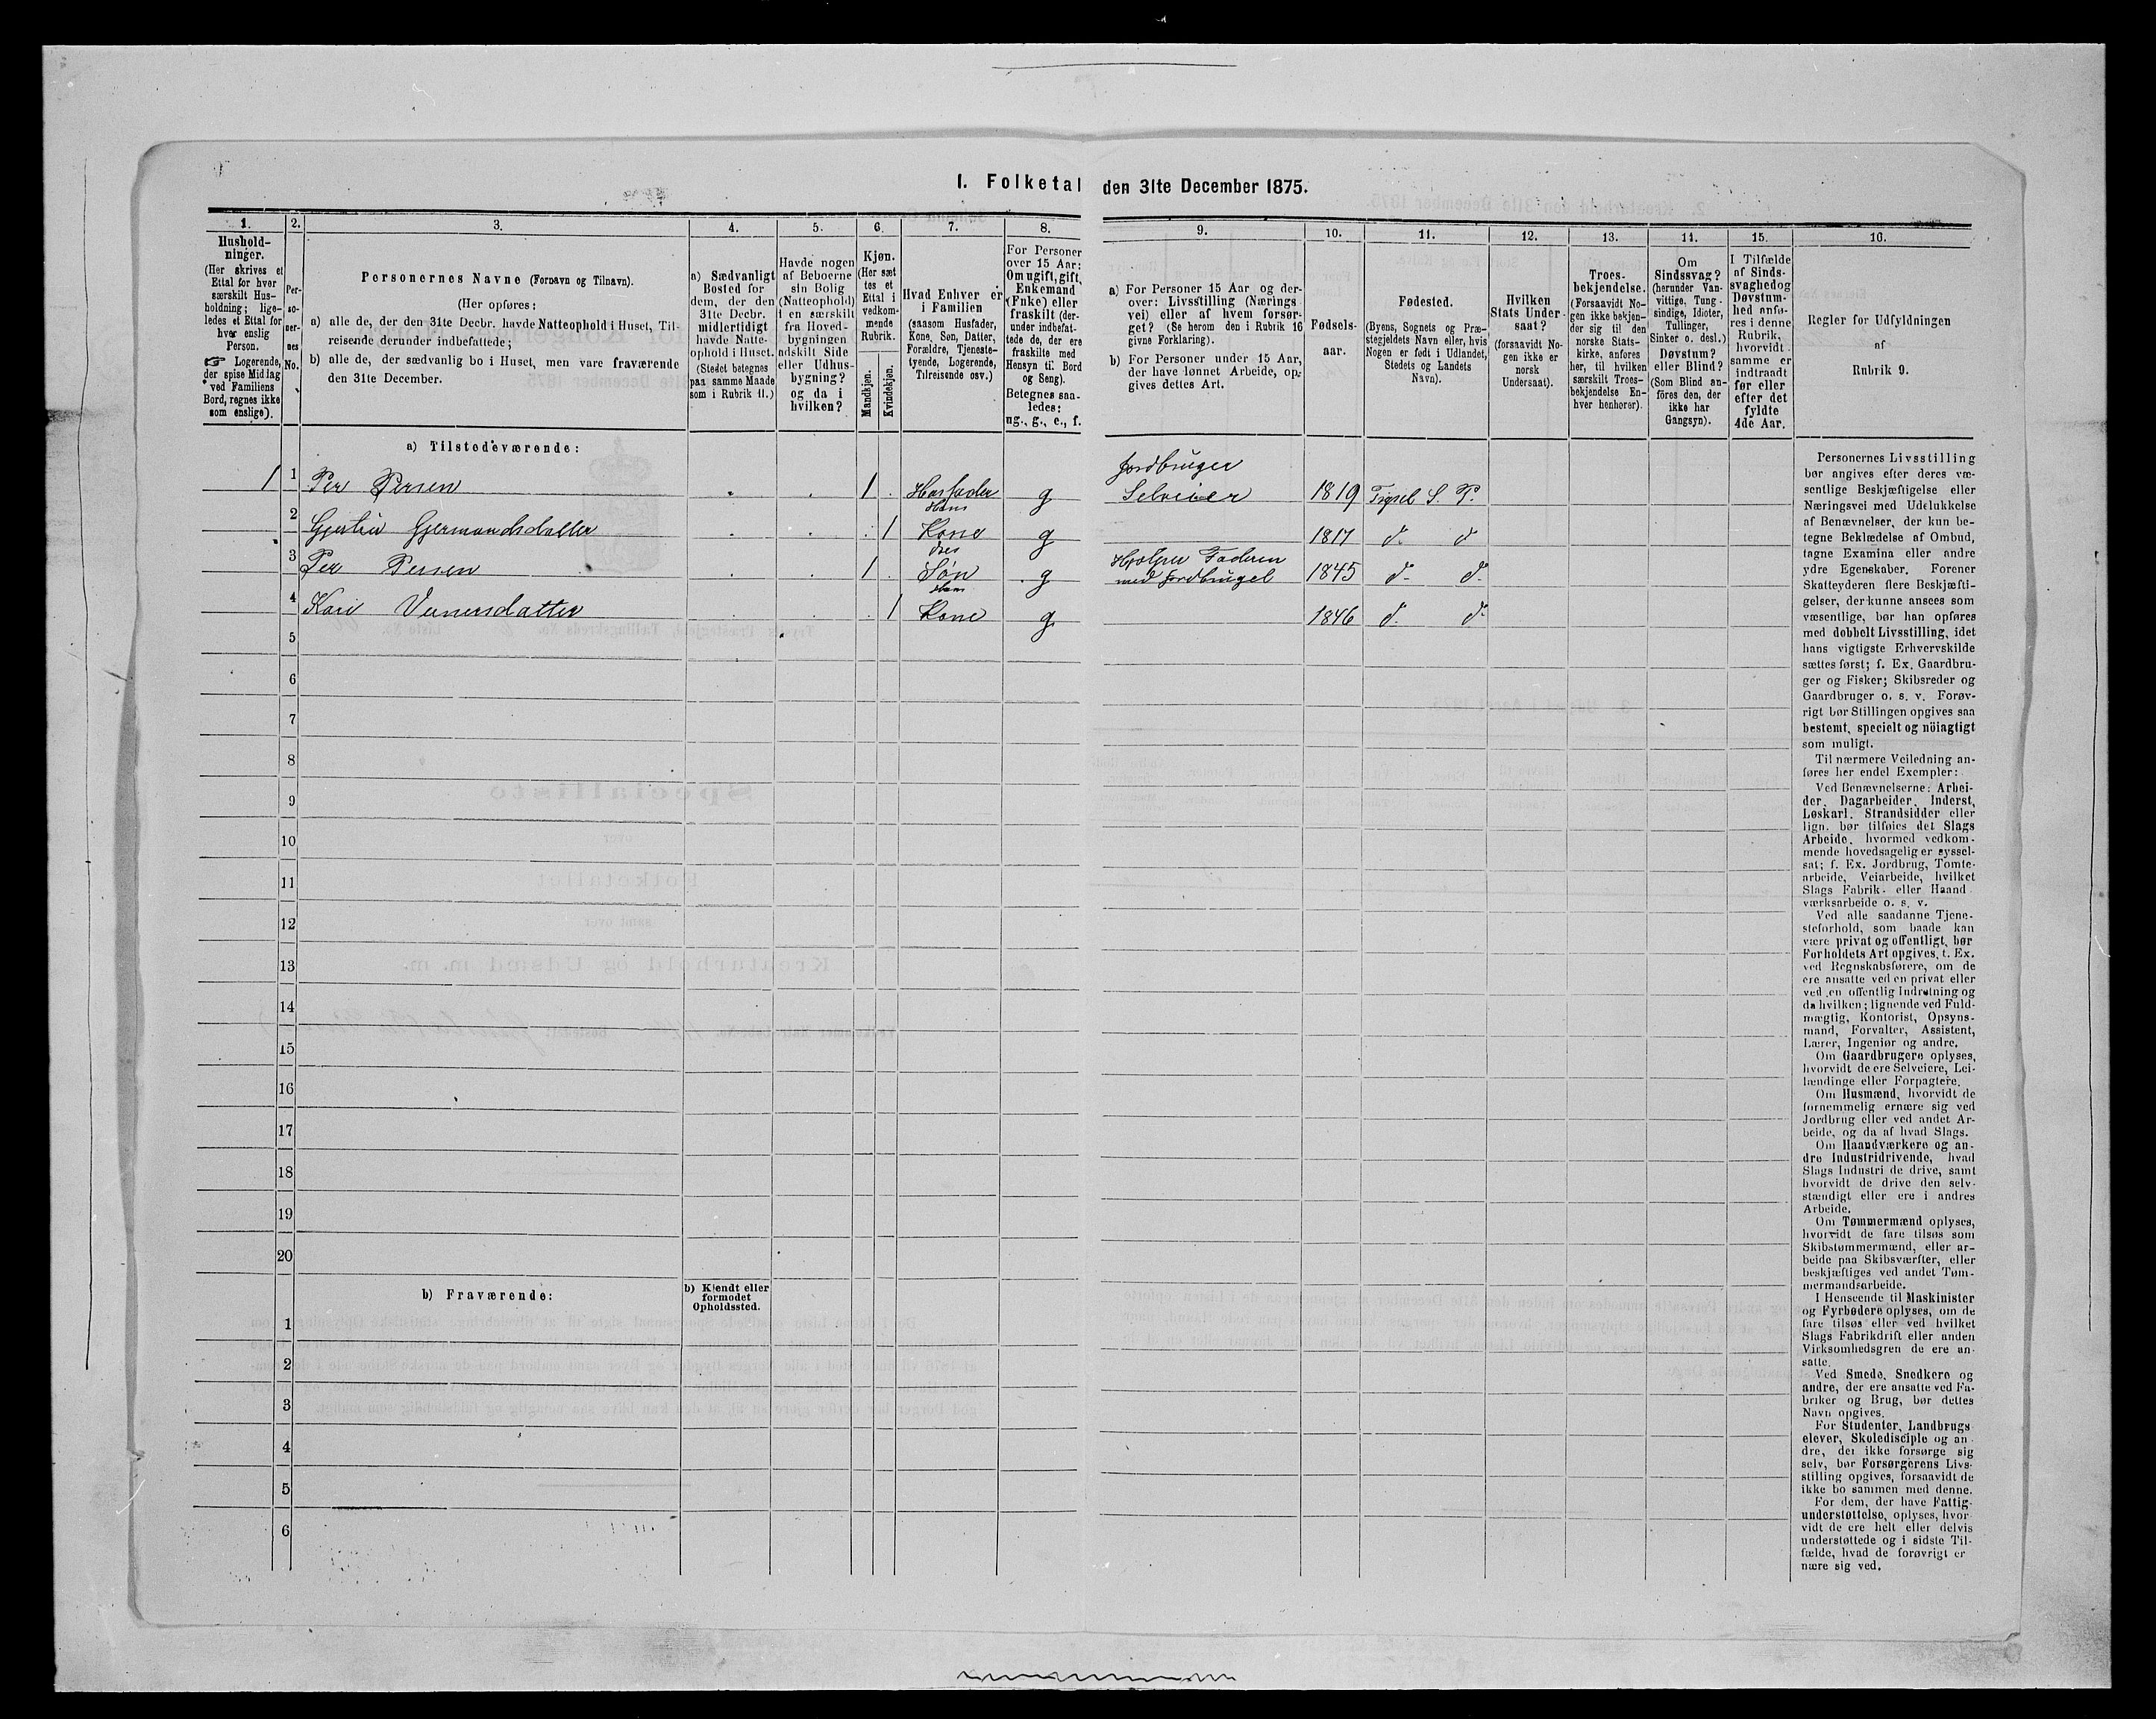 I. Folketal den 31te December 1875.
1.
Hushold-
ninger.
(Her skrives et
Ettal for hver
særskilt Hus-
holdning; lige-
ledes et Ettal for
hver enslig
Person.
☞ Logerende,
der spise Middag
ved Familiens
Bord, regnes ikke
som enslige).
2.
Per-
so-
ner-
nes
No.
3.
Personernes Navne (Fornavn og Tilnavn).
(Her opføres:
a) alle de, der den 31te Decbr. havde Natteophold i Huset, Til-
reisende derunder indbefattede;
b) alle de, der sædvanlig bo i Huset, men vare fraværende
den 31te December.
4.
a) Sædvanligt
Bosted for
dem, der den
31te Decbr.
midlertidigt
havde Natte-
ophold i Huset.
(Stedet betegnes
paa samme Maade
som i Rubrik 11.)
5.
Havde nogen
af Beboerne
sin Bolig
(Natteophold)
i en særskilt
fra Hoved-
bygningen
adskilt Side
eller Udhus-
bygning?
og da i
hvilken?
6.
Kjøn.
(Her sæt
tes et
Ettal i
vedkom-
mende
Rubrik.
Mandkjøn.
Kvindekjøn.
7.
Hvad Enhver er
i Familien
(saasom Husfader,
Kone, Søn, Datter,
Forældre, Tjeneste-
tyende, Logerende,
Tilreisende osv.)
8.
For Personer
over 15 Aar:
Om ugift, gift,
Enkemand
(Enke) eller
fraskilt (der-
under indbefat-
tede de, der ere
fraskilte med
Hensyn til Bord
og Seng).
Betegnes saa-
ledes:
ug., g., e., f.
9.
a) For Personer 15 Aar og der-
over: Livsstilling (Nærings
vei) eller af hvem forsør-
get? (Se herom den i Rubrik 16
givne Forklaring).
b) For Personer under 15 Aar,
der have lønnet Arbeide, op-
gives dettes Art.
10.
Fødsels-
aar.
11.
Fødested.
(Byens, Sognets og Præ-
stegjeldets Navn eller, hvis
Nogen er født i Udlandet,
Stedets og Landets
Navn).
12.
Hvilken
Stats Under-
saat?
(forsaavidt No-
gen ikke er
norsk
Undersaat).
13.
Troes-
bekjendelse.
(Forsaavidt No-
gen ikke bekjen-
der sig til den
norske Stats-
kirke, anføres
her, til hvilken
særskilt Troes-
bekjendelse En-
hver henhører).
14.
Om
Sindssvag?
(herunder Van-
vittige, Tung-
sindige, Idioter,
Tullinger,
Sinker o. desl.)
Døvstum?
eller Blind?
(Som Blind an-
föres den, der
ikke har
Gangsyn).
15.
I Tilfælde
af Sinds-
svaghed og
Døvstum-
hed anfø-
res i denne
Rubrik,
hvorvidt
samme er
indtraadt
før eller
efter det
fyldte
4de Aar.
16.
Regler for Udfyldningen
af
Rubrik 9.
a) Tilstedeværende:
1 1 Per Persen 1 Husfader g Jordbruger Selveier 1819 Trysil S. P.
2 Gjertrud Gjermundsdatter 1 Hans Kone g 1817 d. d.
3 Per Persen 1 dres Søn g Hjelper Faderen med Jordbruget 1845 d. d.
4 Kari 1 Hans Kone g 1846 d. d.
5
6
7
8
9
10
11
12
13
14
15
16
17
18
19
20
b) Fraværende:
b) Kjendt eller
formodet
Opholdssted.
1
2
3
4
5
6
Personernes Livsstilling
bør angives efter deres væ-
sentlige Beskjæftigelse eller
Næringsvei med Udelukkelse
af Benævnelser, der kun be-
tegne Beklædelse af Ombud,
tagne Examina eller andre
ydre Egenskaber. Forener
Skatteyderen flere Beskjæfti-
gelser, der kunne ansees som
væsentlige, bør han opføres
med dobbelt Livsstilling, idet
hans vigtigste Erhvervskilde
sættes først; f. Ex. Gaardbru-
ger og Fisker; Skibsreder og
Gaardbruger o. s. v. Forøv-
rigt bør Stillingen opgives saa
bestemt, specielt og nöiagtigt
som muligt.
Til nærmere Veiledning an-
føres her endel Exempler:
Ved Benævnelserne: Arbei-
der, Dagarbeider, Inderst,
Løskarl, Strandsidder eller
lign. bør tilføies det Slags
Arbeide, hvormed vedkom-
mende hovedsagelig er syssel-
sat; f. Ex. Jordbrug, Tomte-
arbeide, Veiarbeide, hvilket
Slags Fabrik- eller Haand-
værksarbeide o. s. v.
Ved alle saadanne Tjene-
steforhold, som baade kan
være privat og offentligt, bør
Forholdets Art opgives, f. Ex.
ved Regnskabsførere, om de
ere ansatte ved en privat eller
ved en offentlig Indretning og
da hvilken; lignende ved Fuld-
mægtig, Kontorist, Opsyns-
mand, Forvalter, Assistent,
Lærer, Ingeniør og andre.
Om Gaardbrugere oplyses,
hvorvidt de ere Selveiere, Lei-
lændinge eller Forpagtere.
Om Husmænd, hvorvidt de
fornemmelig ernære sig ved
Jordbrug eller ved andet Ar-
beide, og da af hvad Slags.
Om Haandværkere og an-
dre Industridrivende, hvad
Slags Industri de drive, samt
hvorvidt de drive den selv-
stændigt eller ere i andres
Arbeide.
Om Tømmermænd oplyses,
hvorvidt de fare tilsøs som
Skibstømmermænd, eller ar-
beide paa Skibsværfter, eller
beskjæftiges ved andet Tøm-
mermandsarbeide.
I Henseende til Maskinister
og Fyrbødere oplyses, om de
fare tilsøs eller ved hvilket
Slags Fabrikdrift eller anden
Virksomhedsgren de ere an-
satte.
Ved Smede, Snedkere og
andre, der ere ansatte ved Fa-
briker og Brug, bør dettes
Navn opgives.
For Studenter, Landbrugs
elever, Skoledisciple og an-
dre, der ikke forsørge sig
selv, bør Forsørgerens Livs-
stilling opgives, forsaavidt de
ikke bo sammen med denne.
For dem, der have Fattig-
understøttelse, oplyses, hvor-
vidt de ere helt eller delvis
understøttede og i sidste Til-
fælde, hvad de forøvrigt er
nære sig ved.